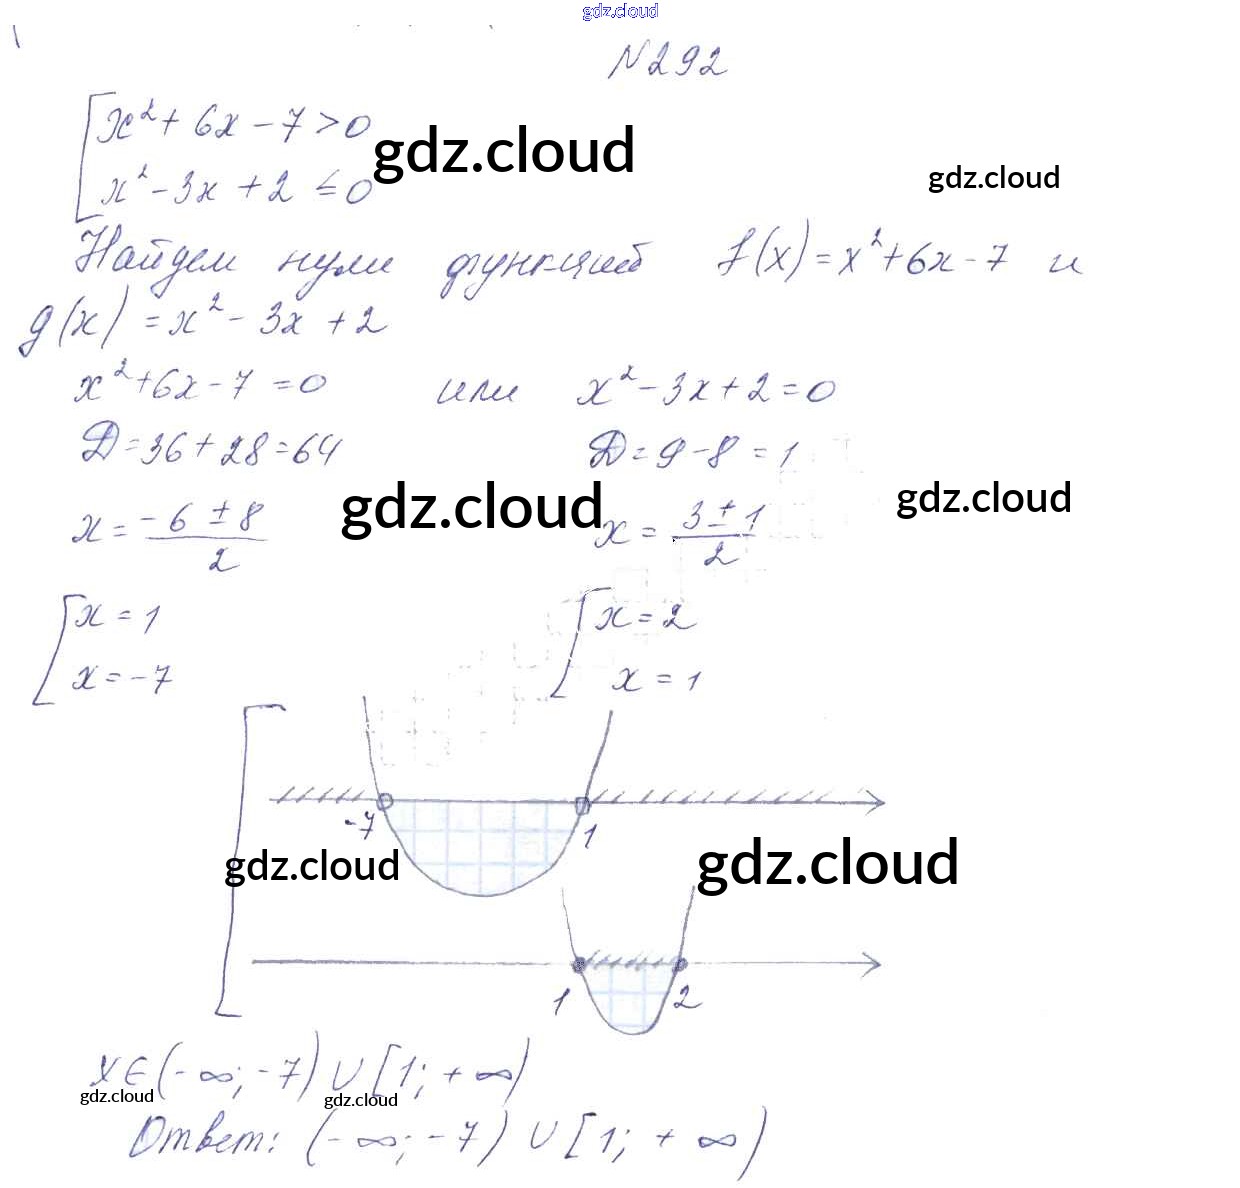 gdz.cloud
N292
[x² + 6x - 7 > 0
x² - 3x + 2 ≤ 0
gdz.cloud
gdz.cloud
Найдем нули функций f(x) = x² + 6x - 7 и
g(x) = x² - 3x + 2
x² + 6x - 7 = 0 или x² - 3x + 2 = 0
D = 36 + 28 = 64 D = 9 - 8 = 1
gdz.cloud
gdz.cloud
x = (-6 ± 8)/2 x = (3 ± 1)/2
[x = 1 [x = 2
x = -7 x = 1
-7 1
gdz.cloud
gdz.cloud
1 2
x ∈ (-∞; -7) ∪ [1; +∞)
gdz.cloud
gdz.cloud
Ответ: (-∞; -7) ∪ [1; +∞)